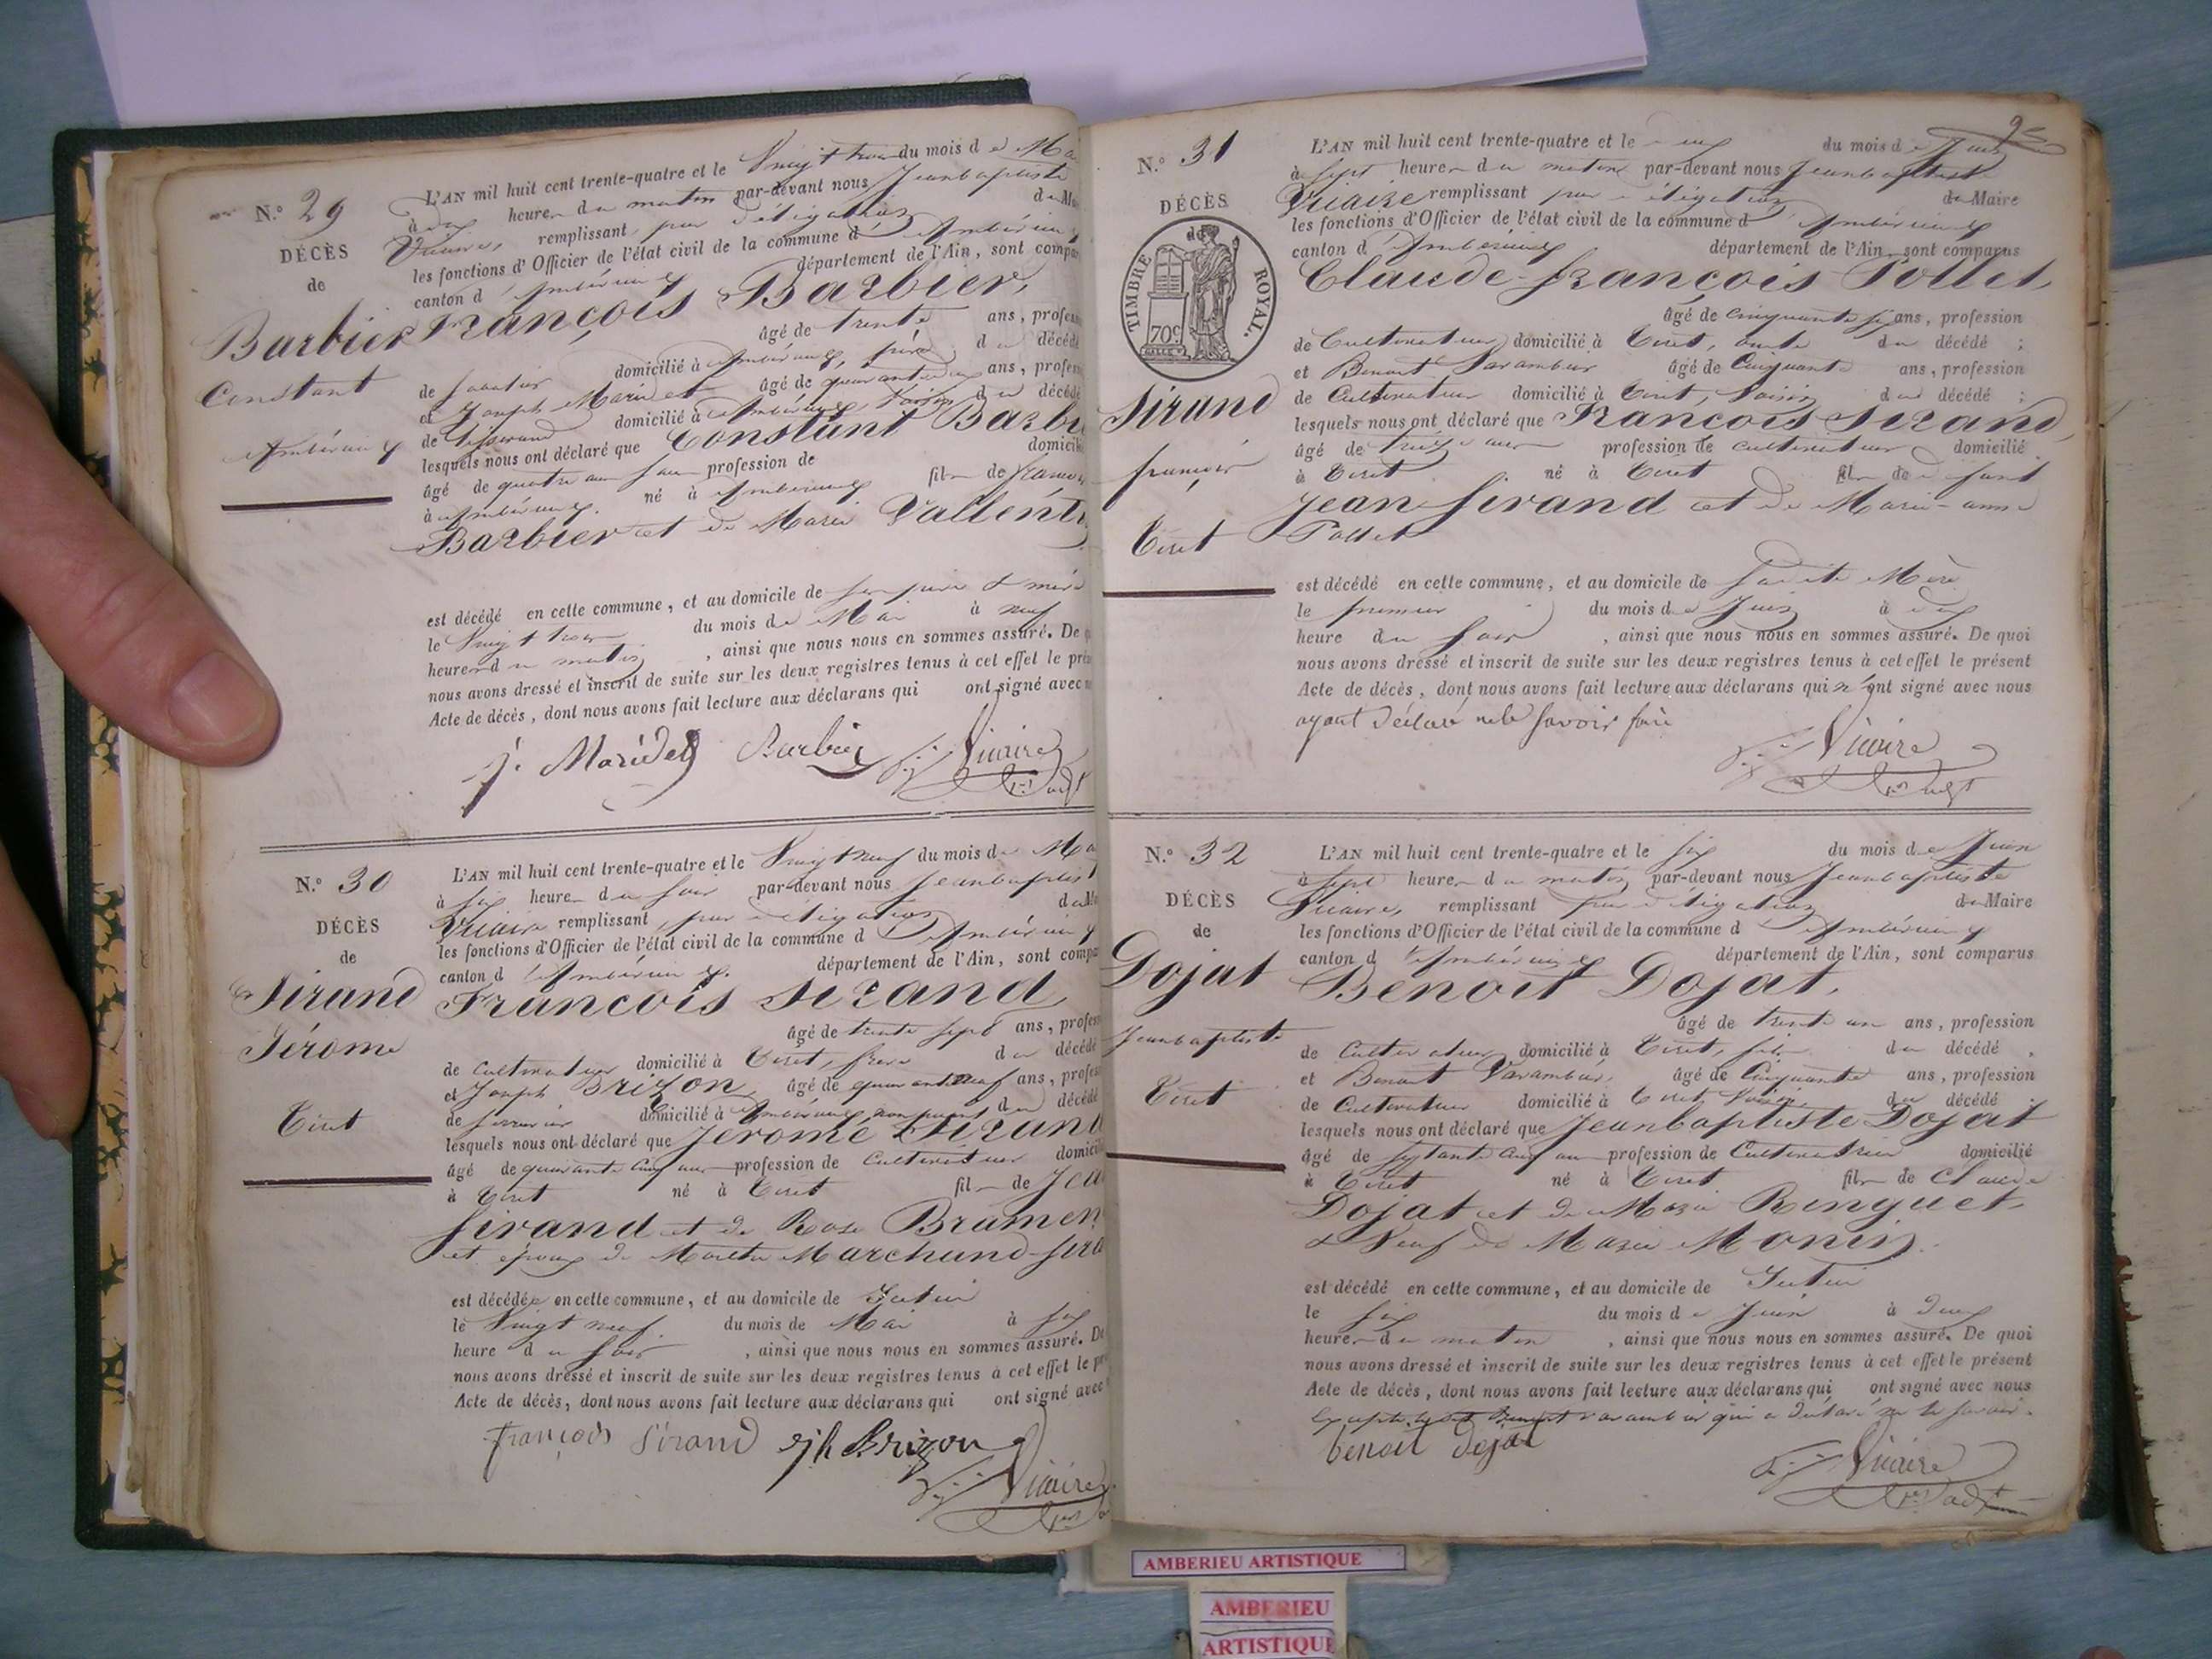 N.º 29
DÉCÈS
de
Barbier
Constant
Ambérieux
L'AN mil huit cent trente-quatre et le Vingt trois du mois de Ma
à dix heures du matin par-devant nous Jeanbaptiste
Vicaire, remplissant, par délégation du M
les fonctions d'Officier de l'état civil de la commune d'Ambérieux
canton d'Ambérieux département de l'Ain, sont compar
François Barbier,
âgé de trente ans, profess
de sabotier domicilié à Ambérieux, frère du décédé
et Joseph Maridet âgé de quarante ans, profess
de tisserand domicilié à Ambérieux, voisin du décédé
lesquels nous ont déclaré que Constant Barbi
âgé de quatre ans profession de domicili
à Ambérieux. né à Ambérieux fils de François
Barbier et de Marie Vallenti
est décédé en cette commune, et au domicile de ses père & mère
le Vingt trois du mois de Mai à neuf
heures du matin, ainsi que nous nous en sommes assuré. De q
nous avons dressé et inscrit de suite sur les deux registres tenus à cet effet le prés
Acte de décès, dont nous avons fait lecture aux déclarans qui ont signé avec n
j. Maridet Barbier Vicaire
N.º 30
DÉCÈS
de
Sirand
Jérome
Tiret
L'AN mil huit cent trente-quatre et le Vingt neuf du mois de Ma
à six heures du soir par-devant nous Jeanbaptist
Vicaire remplissant, par délégation du M
les fonctions d'Officier de l'état civil de la commune d'Ambérieux
canton d'Ambérieux. département de l'Ain, sont compa
François Sirand
âgé de trente sept ans, profess
de cultivateur domicilié à Tiret, frère du décédé
et Joseph Brizon, âgé de quarante neuf ans, profess
de serrurier domicilié à Ambérieux, non parent du décédé
lesquels nous ont déclaré que Jérome Sirand
âgé de quarante cinq ans profession de Cultivateur domicili
à Tiret né à Tiret fils de Jea
Sirand et de Rose Bramen
et époux de Marthe Marchand-Sira
est décédée en cette commune, et au domicile de Icelui
le Vingt neuf du mois de Mai à six
heure du soir, ainsi que nous nous en sommes assuré. De
nous avons dressé et inscrit de suite sur les deux registres tenus à cet effet le pr
Acte de décès, dont nous avons fait lecture aux déclarans qui ont signé avec
françois Sirand jh Brizon
Vicaire
N.º 31
DÉCÈS
de
TIMBRE ROYAL.
70c.
Sirand
françois
Tiret
L'AN mil huit cent trente-quatre et le deux du mois de Juin
à sept heures du matin par-devant nous Jeanbaptiste
Vicaire remplissant par délégation du Maire
les fonctions d'Officier de l'état civil de la commune d'Ambérieux
canton d'Ambérieux département de l'Ain, sont comparus
Claude-françois Tollet
âgé de cinquante six ans, profession
de Cultivateur domicilié à Tiret, oncle du décédé ;
et Benoit Varambier âgé de Cinquante ans, profession
de Cultivateur domicilié à Tiret, Voisin du décédé ;
lesquels nous ont déclaré que François Sirand,
âgé de treize ans profession de cultivateur domicilié
à Tiret né à Tiret fils de défunt
Jean Sirand et de Marie-anne
Tollet
est décédé en cette commune, et au domicile de sadite Mère
le premier du mois de Juin à dix
heure du soir, ainsi que nous nous en sommes assuré. De quoi
nous avons dressé et inscrit de suite sur les deux registres tenus à cet effet le présent
Acte de décès, dont nous avons fait lecture aux déclarans qui n'ont signé avec nous
ayant déclaré ne le savoir faire
Vicaire
N.º 32
DÉCÈS
de
Dojat
Jeanbaptiste
Tiret
L'AN mil huit cent trente-quatre et le six du mois de Juin
à sept heures du matin par-devant nous Jeanbaptiste
Vicaire, remplissant par délégation du Maire
les fonctions d'Officier de l'état civil de la commune d'Ambérieux
canton d'Ambérieux département de l'Ain, sont comparus
Benoit Dojat,
âgé de trente un ans, profession
de Cultivateur domicilié à Tiret, fils du décédé,
et Benoit Varambier, âgé de Cinquante ans, profession
de Cultivateur domicilié à Tiret, Voisin du décédé ;
lesquels nous ont déclaré que Jeanbaptiste Dojat
âgé de septante cinq ans profession de Cultivateur domicilié
à Tiret né à Tiret fils de Claude
Dojat et de Marie Ringuet
& Veuf de Marie Monin.
est décédé en cette commune, et au domicile de Icelui
le six du mois de Juin à deux
heures du matin, ainsi que nous nous en sommes assuré. De quoi
nous avons dressé et inscrit de suite sur les deux registres tenus à cet effet le présent
Acte de décès, dont nous avons fait lecture aux déclarans qui ont signé avec nous
excepté ledit Benoit Varambier qui a déclaré ne le savoir.
benoit dojat
Vicaire
AMBERIEU ARTISTIQUE
AMBERIEU
ARTISTIQUE